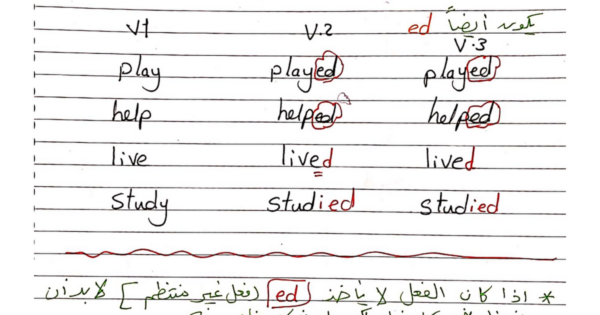 يكون أيضاً ed
V1 V.2 V.3
play played played
help helped helped
live lived lived
study studied studied
* اذا كان الفعل لا يأخذ [ed] (فعل غير منتظم] لابد أن